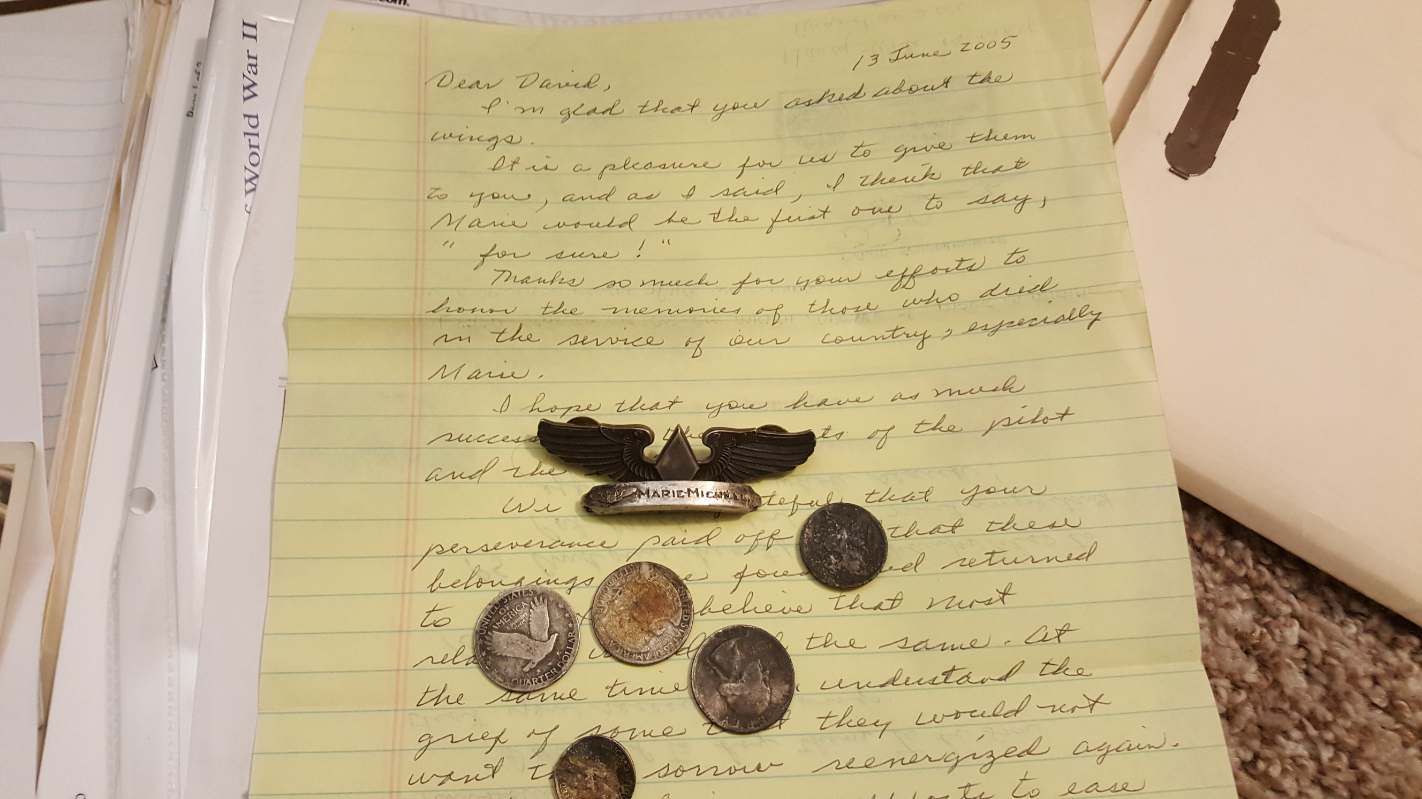 13 June 2005
Dear David,
I'm glad that you asked about the
wings.
It is a pleasure for us to give them
to you, and as I said, I think that
Marie would be the first one to say,
"for sure!"
Thanks so much for your efforts to
honor the memories of those who died
in the service of our country, especially
Marie.
I hope that you have as much
success of the pilot
and the
that your
perseverance paid off that these
belongings returned
to believe that most
the same. At
the same time understand the
grief of some they would not
want sorrow reenergized again.
to ease
MARIE MICH
UNITED STATES
OF
AMERICA
QUARTER DOLLAR
World War II